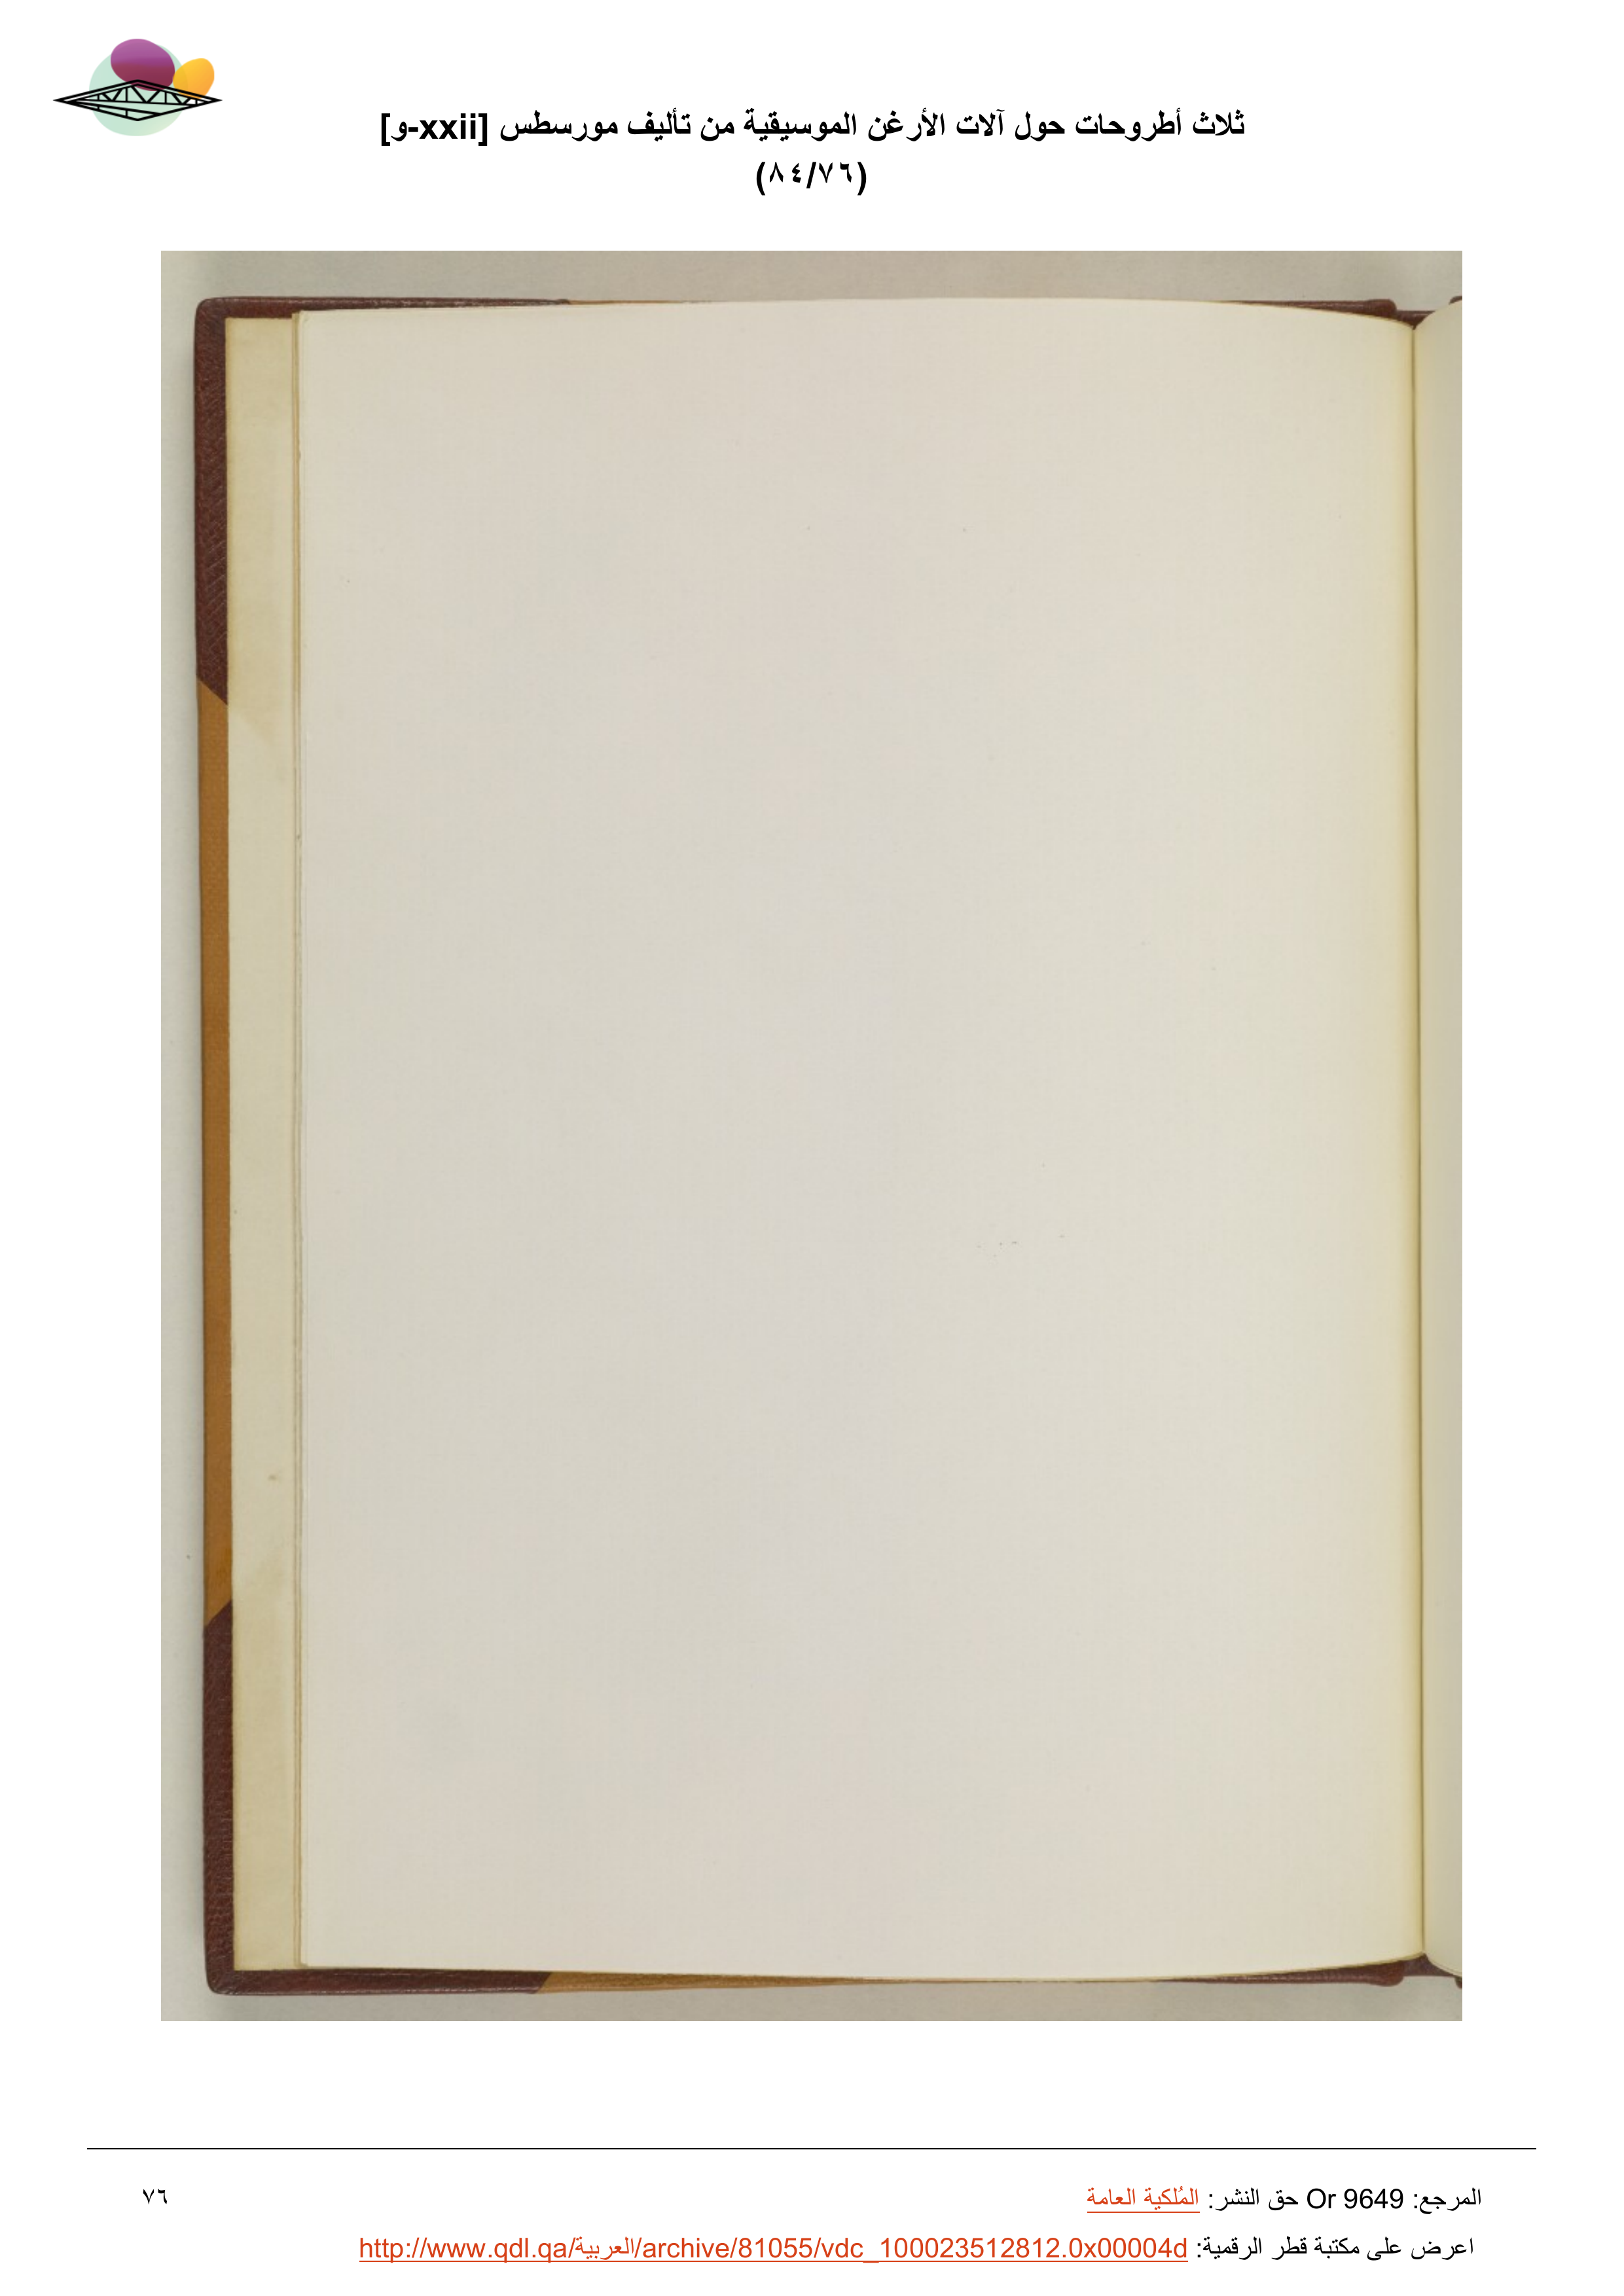 ثلاث أطروحات حول آلات الأرغن الموسيقية من تأليف مورسطس [xxii-و]
(٨٤/٧٦)
المرجع: Or 9649 حق النشر: المُلكية العامة
٧٦
اعرض على مكتبة قطر الرقمية: http://www.qdl.qa/العربية/archive/81055/vdc_100023512812.0x00004d